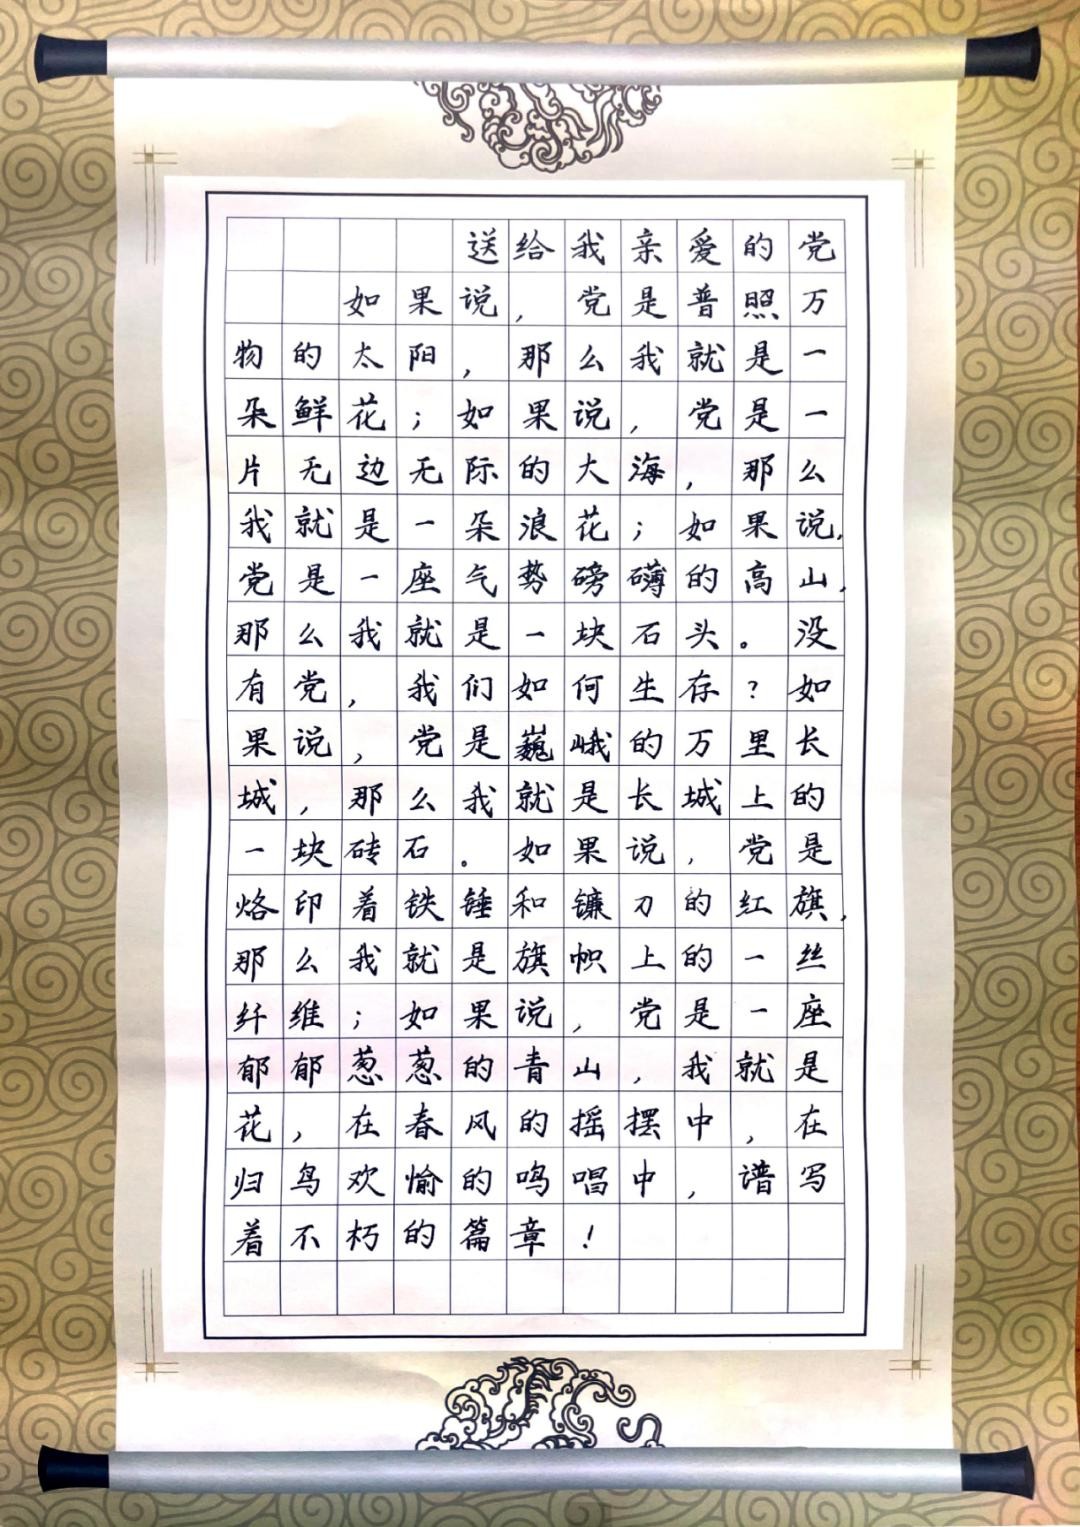 送给我亲爱的党
如果说,党是普照万
物的太阳,那么我就是一
朵鲜花;如果说,党是一
片无边无际的大海,那么
我就是一朵浪花;如果说,
党是一座气势磅礴的高山,
那么我就是一块石头。没
有党,我们如何生存?如
果说,党是巍峨的万里长
城,那么我就是长城上的
一块砖石。如果说,党是
烙印着铁锤和镰刀的红旗,
那么我就是旗帜上的一丝
纤维;如果说,党是一座
郁郁葱葱的青山,我就是
花,在春风的摇摆中,在
归鸟欢愉的鸣唱中,谱写
着不朽的篇章!